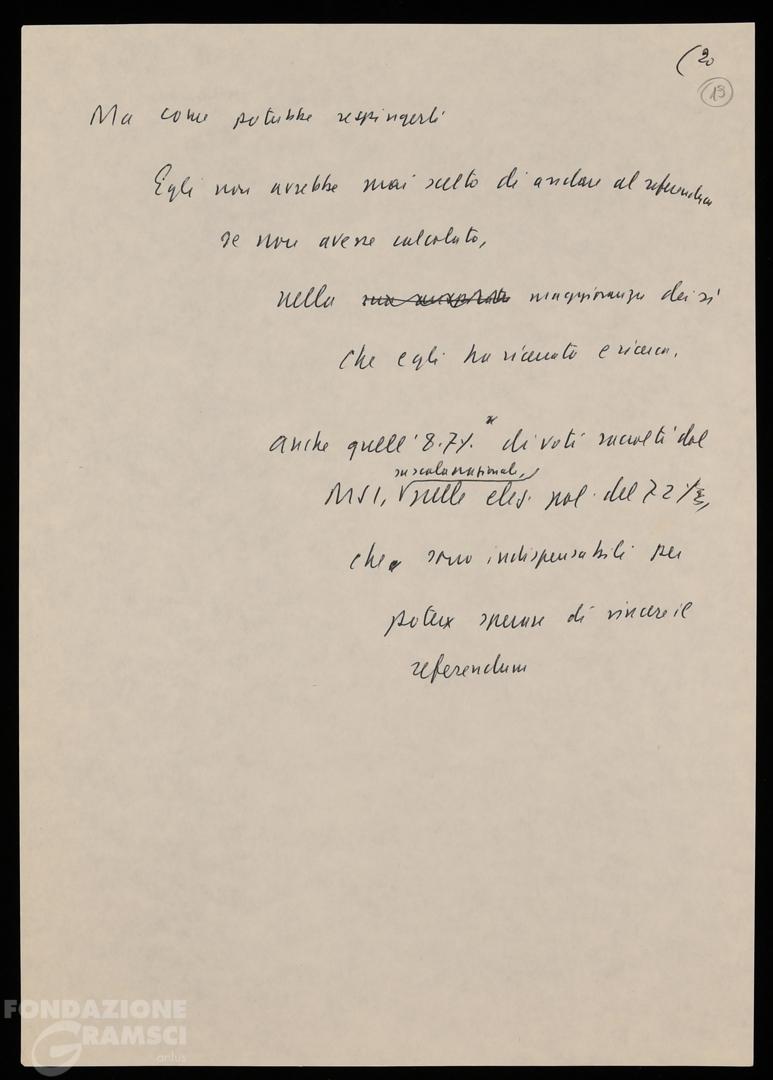 (20
19
Ma come potrebbe respingerli
Egli non avrebbe mai scelto di andare al referendum
se non avesse calcolato,
nella maggioranza dei sì
che egli ha ricercato e ricerca,
anche quell'8.7%. di voti raccolti dal
su scala nazionale,
MSI, nelle elez. pol. del 72
che sono indispensabili per
poter sperare di vincere il
referendum
FONDAZIONE
GRAMSCI
onlus